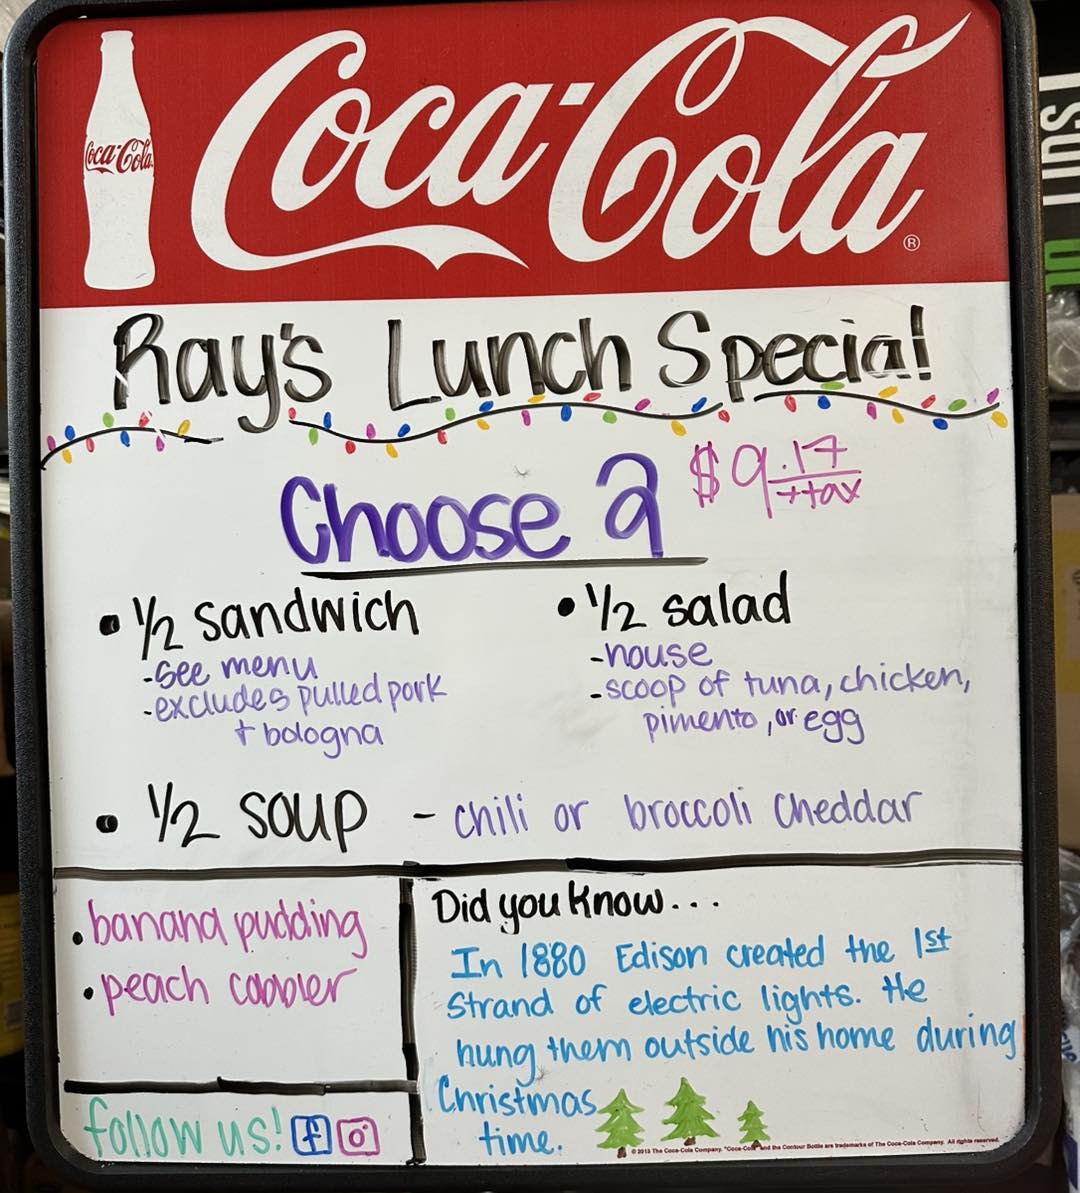 Coca-Cola
Coca-Cola ®
Ray's Lunch Special!
Choose 2
$9.17
+tax
• 1/2 sandwich
-see menu
-excludes pulled pork
+ bologna
• 1/2 salad
-house
-scoop of tuna, chicken,
pimento, or egg
• 1/2 soup - chili or broccoli cheddar
• banana pudding
• peach cobbler
follow us!
Did you know...
In 1880 Edison created the 1st
strand of electric lights. He
hung them outside his home during
Christmas
time.
© 2013 The Coca-Cola Company. "Coca-Cola" and the Contour Bottle are trademarks of The Coca-Cola Company. All rights reserved.